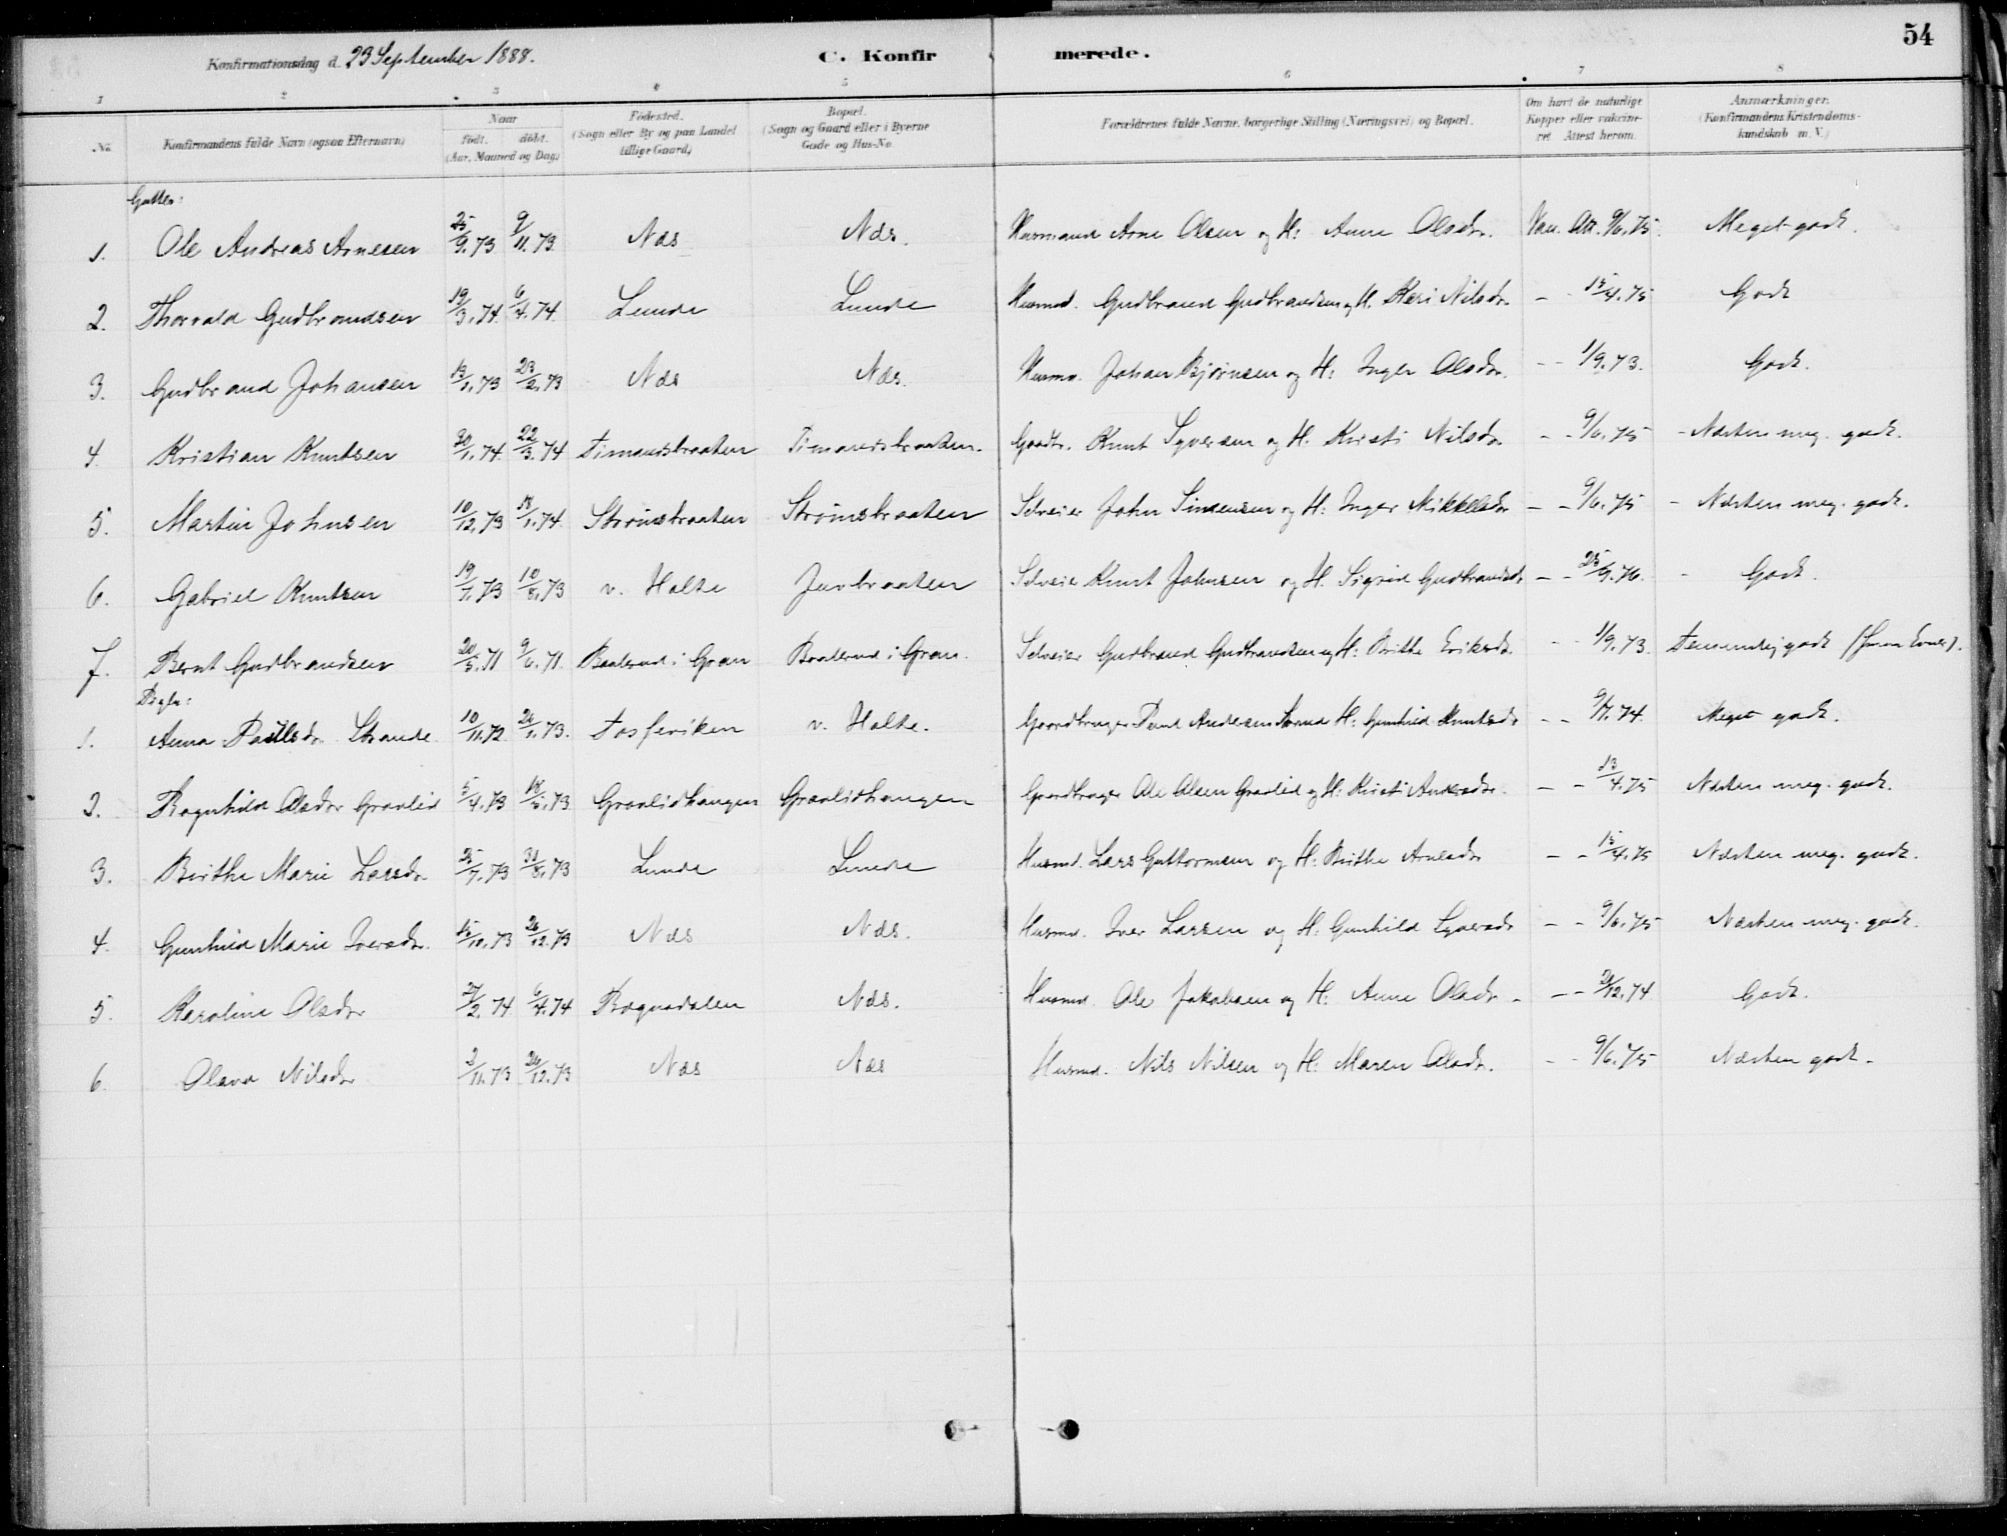 54
Konfirmationsdag d. 23 September 1888.
C. Konfirmerede.
1 2 3 4 5 6 7 8
No. Konfirmandens fulde Navn (ogsaa Efternavn) Naar født. døbt. (Aar, Maaned og Dag.) Fødested. (Sogn eller By og paa Landet tillige Gaard.) Bopæl. (Sogn og Gaard eller i Byerne Gade og Hus-No. Forældrenes fulde Navne, borgerlige Stilling (Næringsvei) og Bopæl. Om havt de naturlige Kopper eller vakcineret. Attest herom. Anmærkninger. (Konfirmandens Kristendomskundskab m. V.)
Gutter:
1. Ole Andreas Arnesen 25/9.73 9/11.73 Næs Næs. Husmand Arne Olsen og H: Anne Olsdr. Vac. Att. 9/6.75. Meget godt.
2. Thorvald Gudbrandsen 19/3.74 6/4.74 Lunde Lunde Husmd. Gudbrand Gudbrandsen og H. Kari Nilsdr. - - 15/4.75 Godt
3. Gudbrand Johansen 13/1.73 23/2.73 Næs Næs. Husmd. Johan Bjørnsen og H: Inger Olsdr. - - 1/9.73. Godt.
4. Kristian Knutsen 20/1.74 22/3.74 Timansbraaten Timansbraaten. Gaardbr. Knut Syversen og H. Kristi Nilsdr. - - 9/6.75 - Næsten meg. godt.
5. Martin Johnsen 10/12.73 18/1.74 Strømsbraaten Strømsbraaten Selveier John Simensen og H: Inger Mikkelsdr - - 9/6.75 - Næsten meg. godt.
6. Gabriel Knutsen 19/7.73 10/8.73 v. Holte Juvbraaten Selveier Knut Johnsen og H. Sigrid Gudbrandsdr - - 25/9.76. - Godt.
7. Bernt Gudbrandsen 20/5.71 9/6.71 Baalerud i Gran Baalerud i Gran. Selveier Gudbrand Gudbrandsen og H: Birthe Eriksdr. - - 1/9.73. Temmelig godt
Piger:
1. Anna Paulsdr. Strande 10/11.72 26/1.73. Tosseviken v. Holte. Gaardbruger Paul Andersen H: Gunhild Knutsdr - - 9/7.74 Meget godt.
2. Ragnhild Olsdr Gravlid 5/4.73 18/5.73 Gravlidhaugen Gravlidhaugen Gaardbruger Ole Olsen Gravlid og H: Kristi Andersdr. - - 13/4.75 Næsten meg. godt.
3. Birthe Marie Larsdr. 25/7.73 31/8.73 Lunde Lunde Husmd. Lars Guttormsen og H: Birthe Arnesdr - - 15/4.75 Næsten meg. godt.
4. Gunhild Marie Iversdr. 15/10.73 26/12.73 Næs Næs. Husmd. Iver Larsen og H: Gunhild Syversdr - - 9/6.75 Næsten meg. godt.
5. Karoline Olsdr 27/2.74 6/4.74 Bægnadalen Næs. Husmd. Ole Jakobsen og H: Anne Olsdr. - - 12.74 Godt.
6. Olava Nilsdr 2/11.73 26/12.73 Næs Næs Husmd. Nils Nilsen og H: Maren Olsdr. - - 9/6.75 Næsten godt.